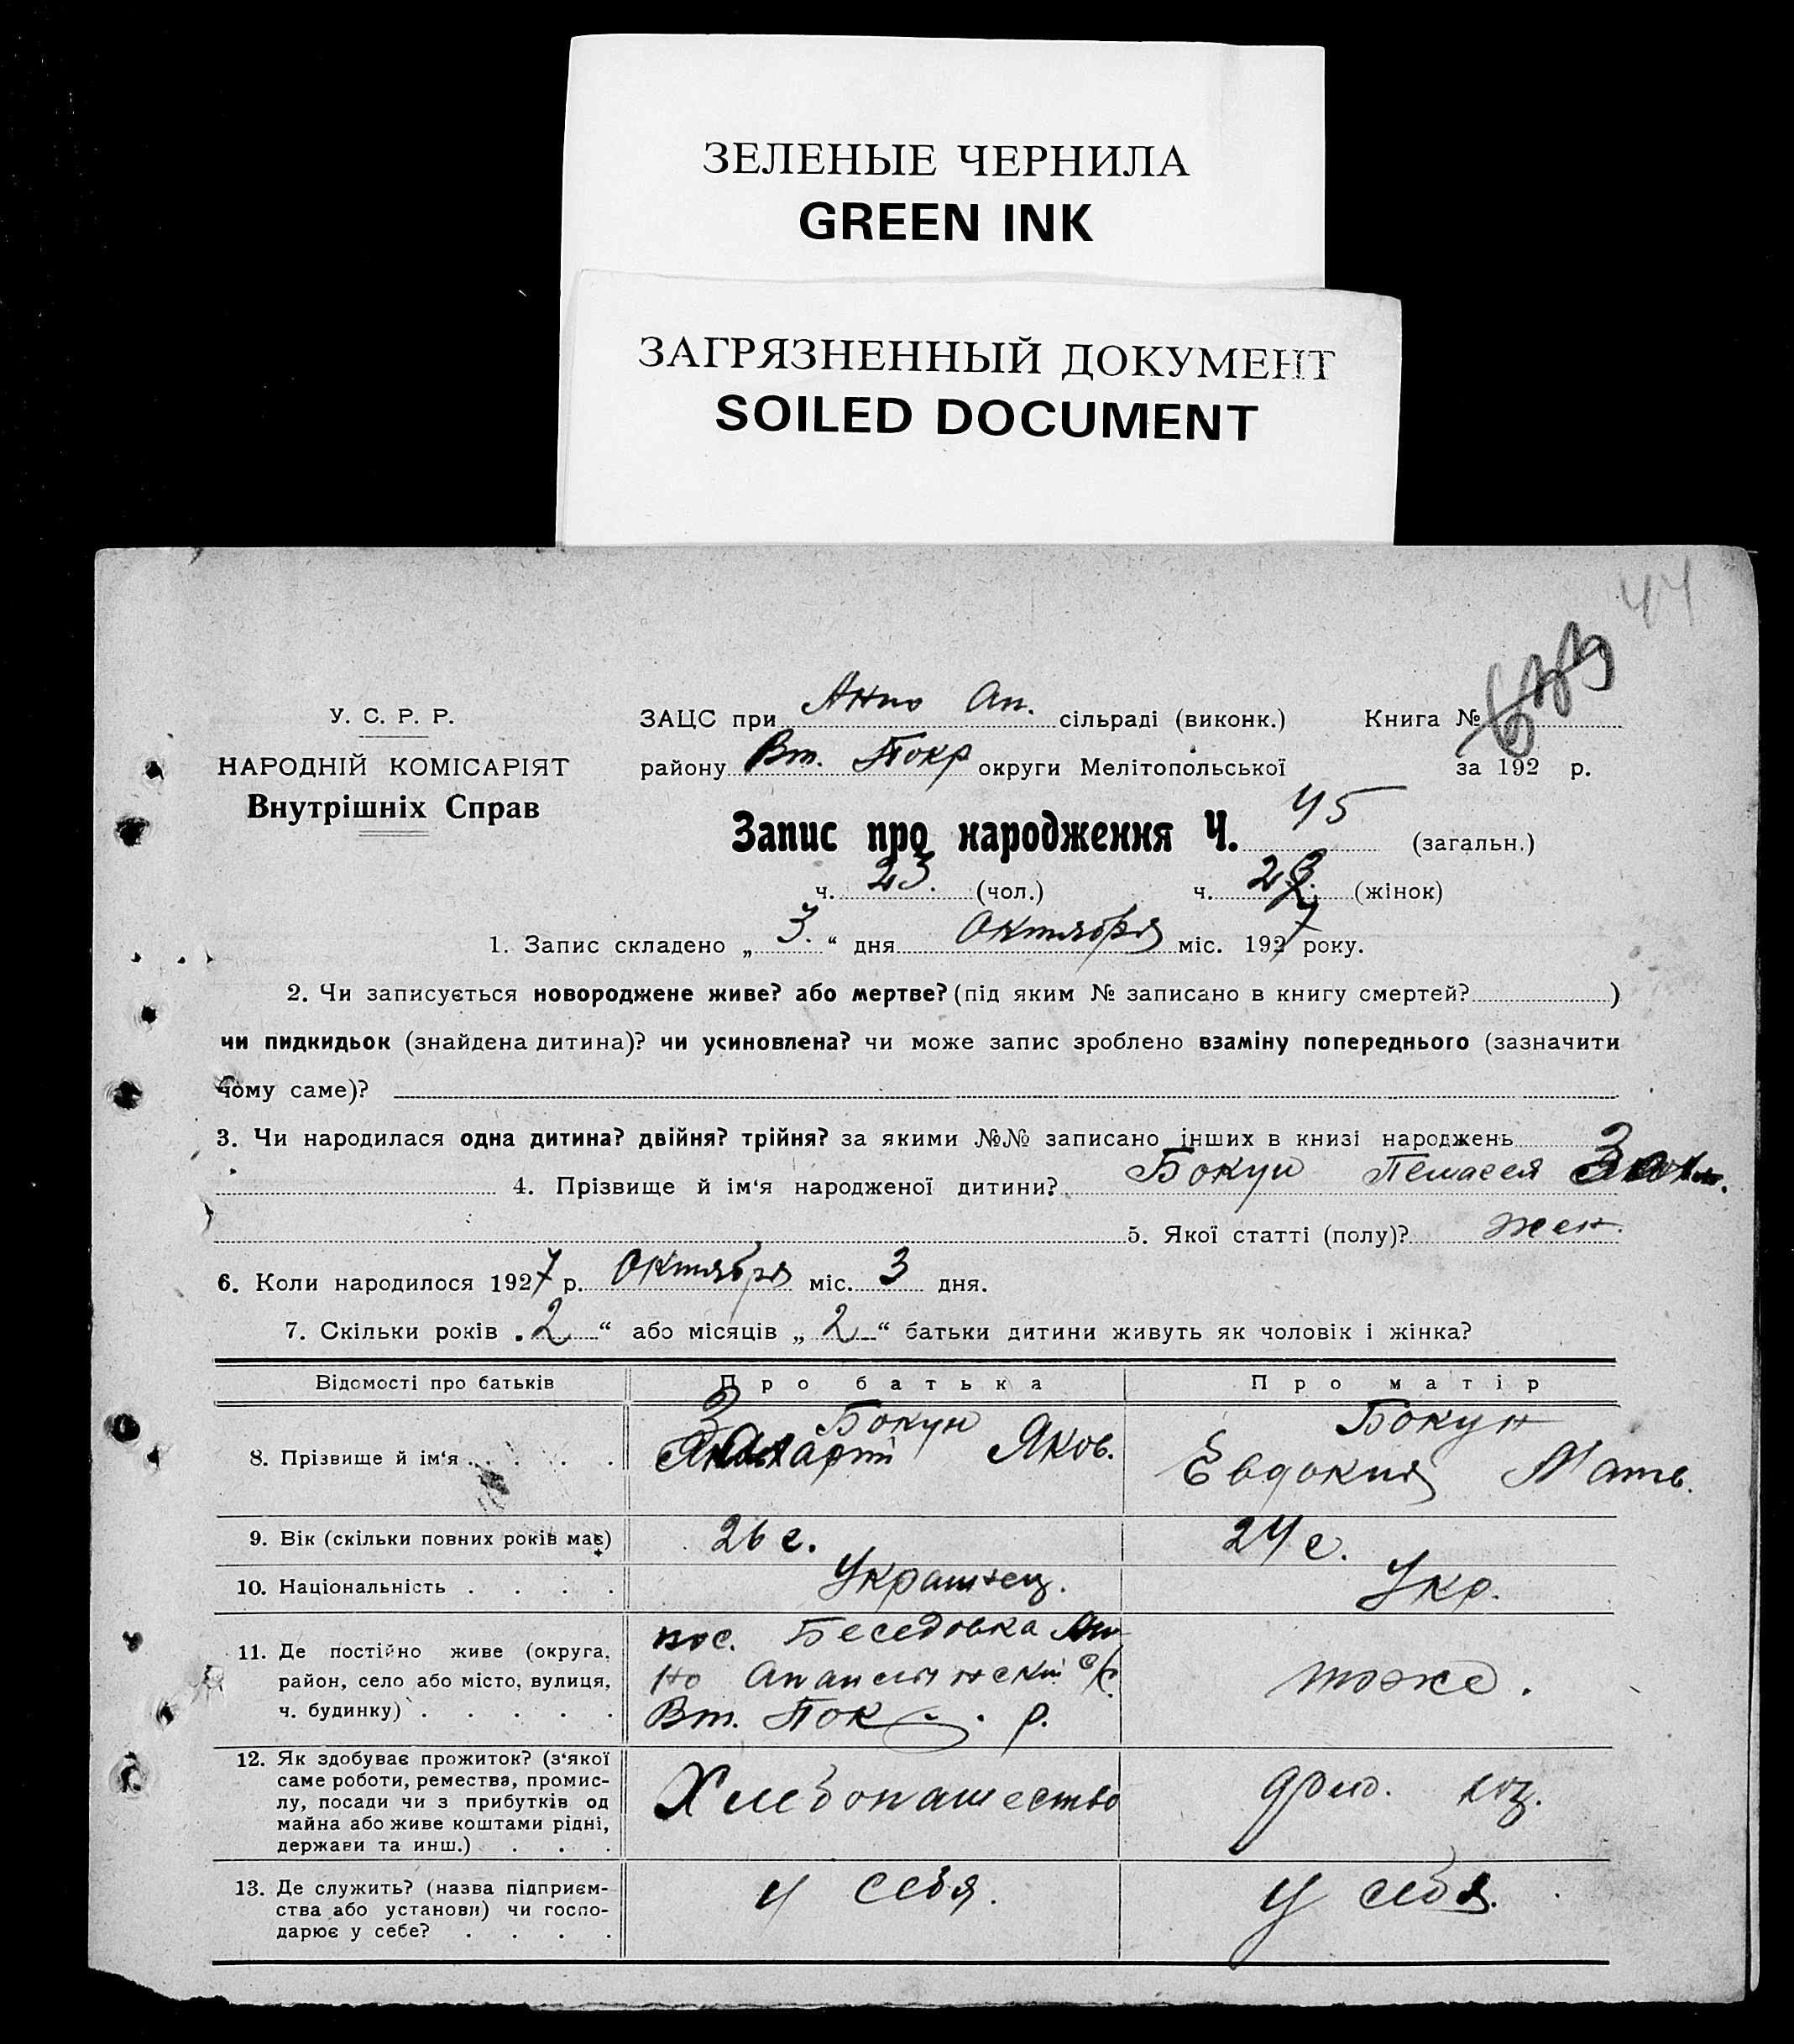 ЗЕЛЕНЫЕ ЧЕРНИЛА
GREEN INK
ЗАГРЯЗНЕННЫЙ ДОКУМЕНТ
SOILED DOCUMENT
44
У. С. Р. Р.
НАРОДНІЙ КОМІСАРІЯТ
Внутрішніх Справ
ЗАЦС при Анно Ап. сільраді (виконк.) Книга №
району Вт. Покр округи Мелітопольської за 192 р.
Запис про народження Ч. 45 (загальн.)
ч. 23. (чол.) ч. (жінок)
1. Запис складено „ 3. “ дня Октября міс. 1927 року.
2. Чи записується новороджене живе? або мертве? (під яким № записано в книгу смертей? )
чи пидкидьок (знайдена дитина)? чи усиновлена? чи може запис зроблено взаміну попереднього (зазначити
чому саме)?
3. Чи народилася одна дитина? двійня? трійня? за якими №№ записано інших в книзі народжень
4. Прізвище й ім‘я народженої дитини? Бокун
5. Якої статті (полу)? жен.
6. Коли народилося 1927 р. Октября міс. 3 дня.
7. Скільки років „ 2 “ або місяців „ 2 “ батьки дитини живуть як чоловік і жінка?
Відомості про батьків Про батька Про матір
8. Прізвище й ім‘я Бокун Яков. Бокун Евдокия Матв.
9. Вік (скільки повних років має) 26 г. 24 г.
10. Національність Украинец. Укр.
11. Де постійно живе (округа, район, село або місто, вулиця, ч. будинку) пос. Беседовка Ан-
но Апанлинский с/с.
Вт. Пок. р. тоже.
12. Як здобуває прожиток? (з‘якої саме роботи, ремества, промислу, посади чи з прибутків од майна або живе коштами рідні, держави та инш.) Хлебопашество
13. Де служить? (назва підприємства або установи) чи господарює у себе? у себя. у себя.